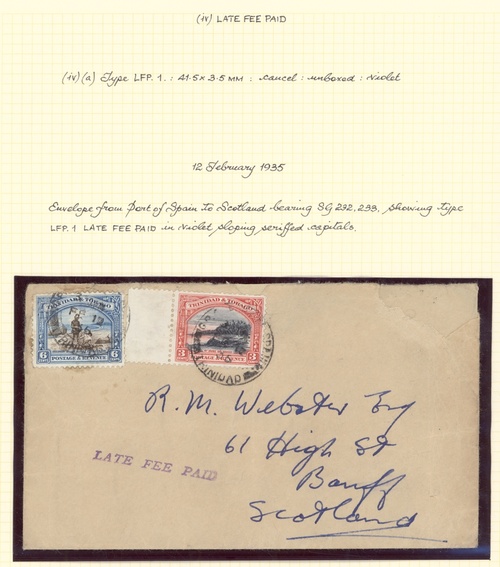 (iv) LATE FEE PAID
(iv)(a) Type LFP. 1. : 41·5 x 3·5 MM : cancel : unboxed : violet
12 February 1935
Envelope from Port of Spain to Scotland bearing SG 232, 233, showing type
LFP. 1 LATE FEE PAID in violet sloping seriffed capitals.
TRINIDAD & TOBAGO
6 6
POSTAGE & REVENUE
TRINIDAD & TOBAGO
3 3
POSTAGE & REVENUE
TRINIDAD
R. M. Webster Esq
61 High St
Banff
Scotland
LATE FEE PAID